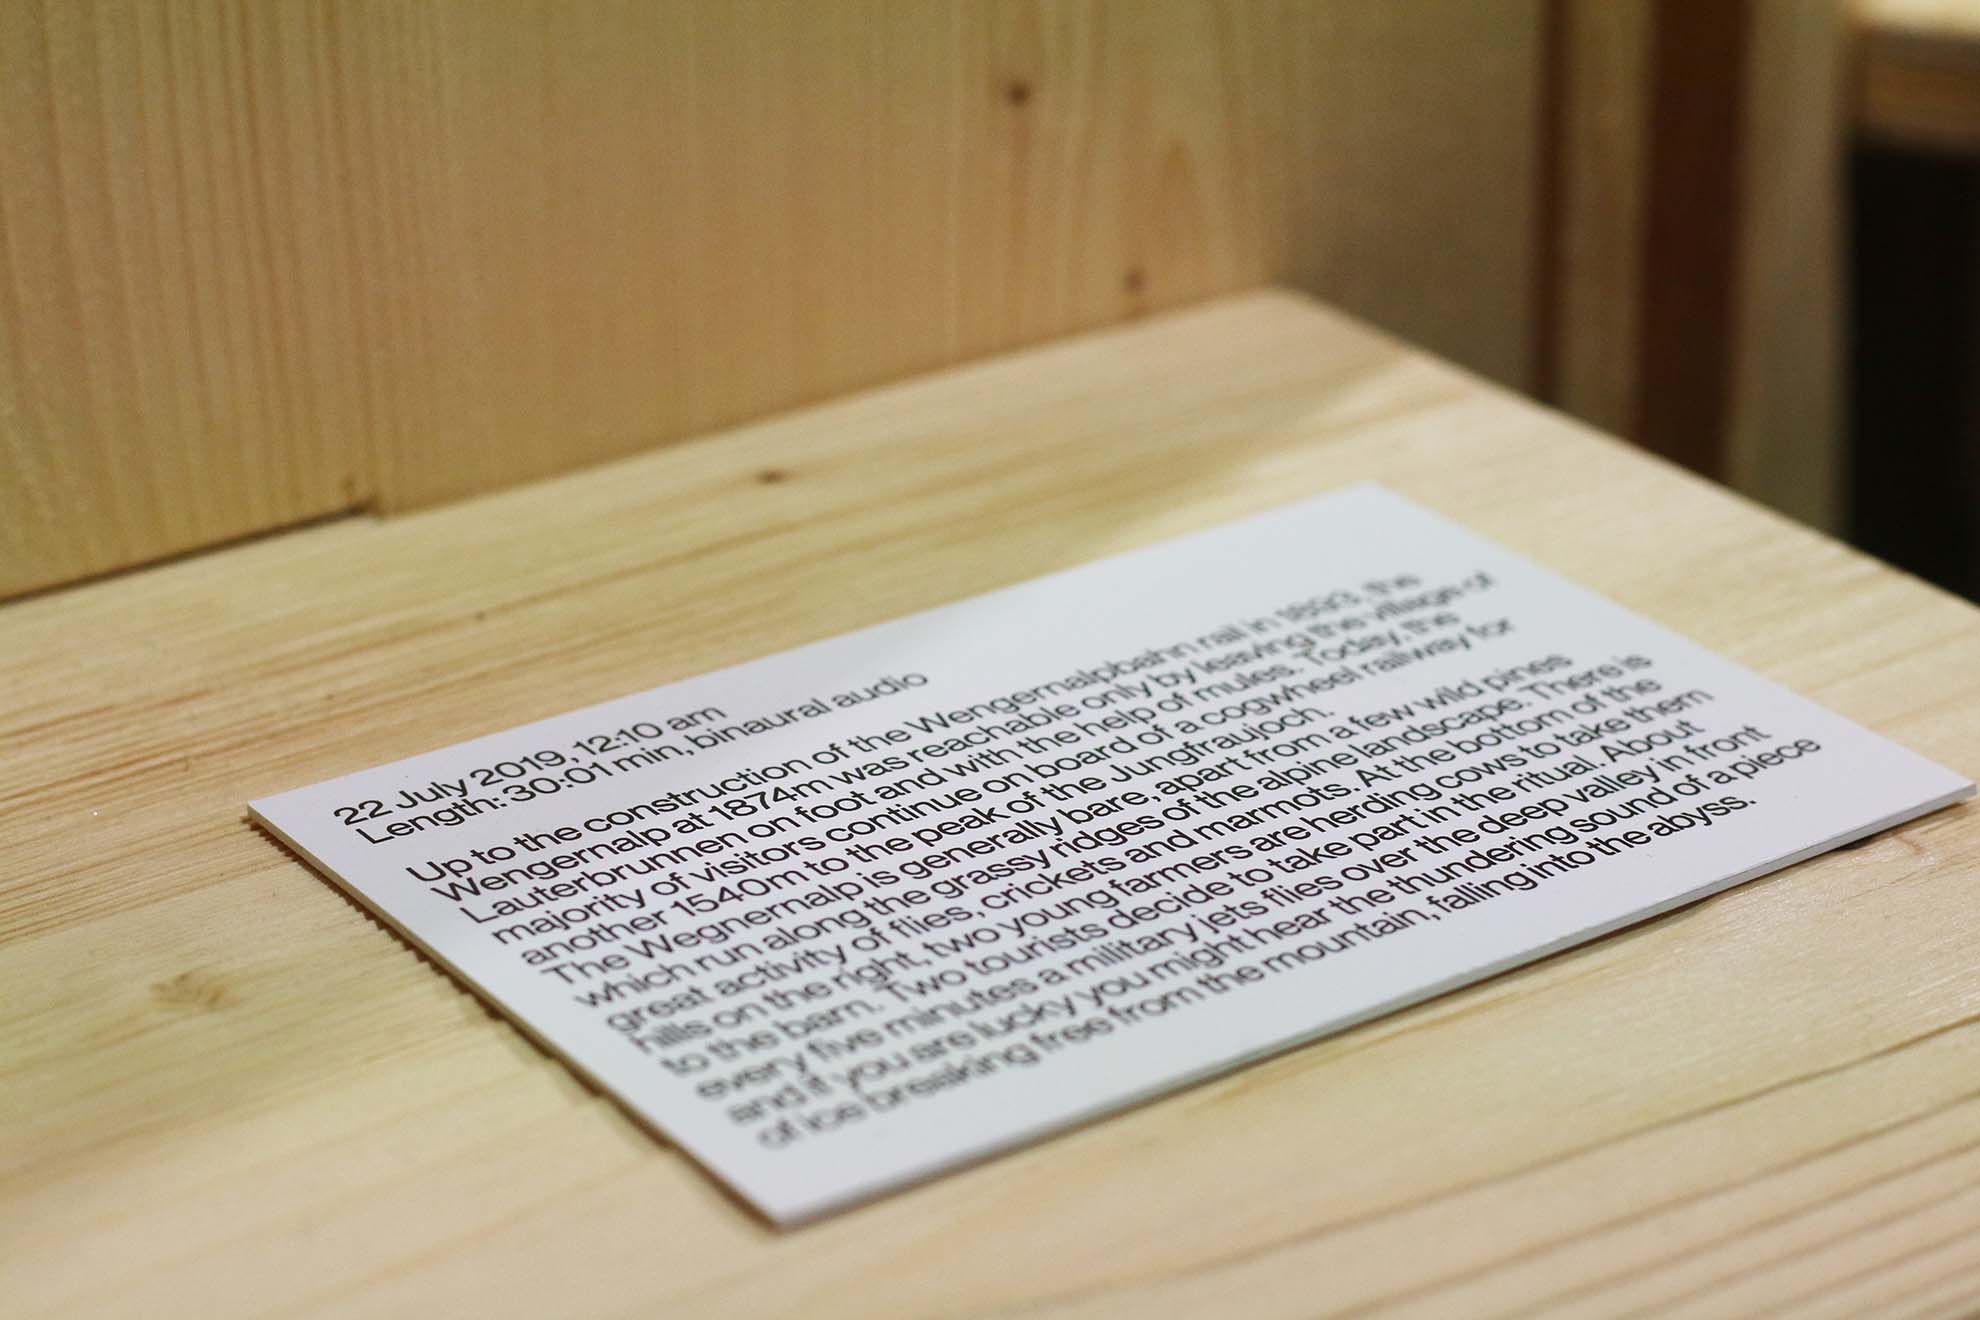 22 July 2019, 12:10 am
Length: 30:01 min, binaural audio
Up to the construction of the Wengernalpbahn rail in 1893, the
Wengernalp at 1874m was reachable only by leaving the village of
Lauterbrunnen on foot and with the help of mules. Today, the
majority of visitors continue on board of a cogwheel railway for
another 1540m to the peak of the Jungfraujoch.
The Wegnernalp is generally bare, apart from a few wild pines
which run along the grassy ridges of the alpine landscape. There is
great activity of flies, crickets and marmots. At the bottom of the
hills on the right, two young farmers are herding cows to take them
to the barn. Two tourists decide to take part in the ritual. About
every five minutes a military jets flies over the deep valley in front
and if you are lucky you might hear the thundering sound of a piece
of ice breaking free from the mountain, falling into the abyss.